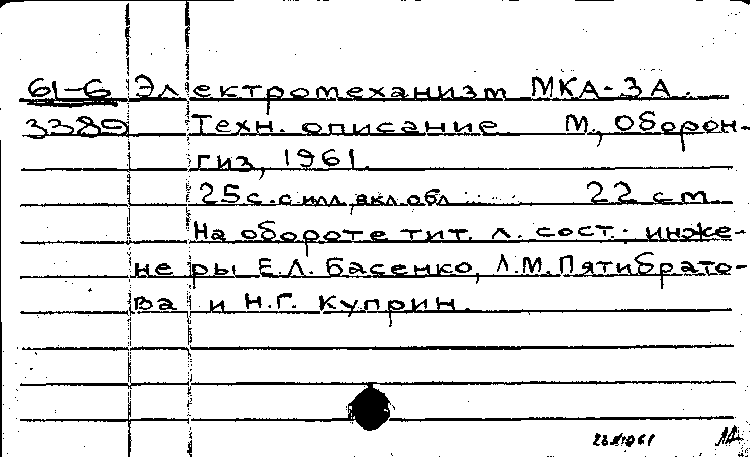 61-6 Электромеханизм МКА-3А.
3389 Техн. описание М., Оборон-
гиз, 1961.
25 с. с илл., вкл. обл. 22 см
На обороте тит. л. сост.: инже-
неры Е.Л. Басенко, Л.М. Пятибрато-
ва и Н.Г. Куприн.